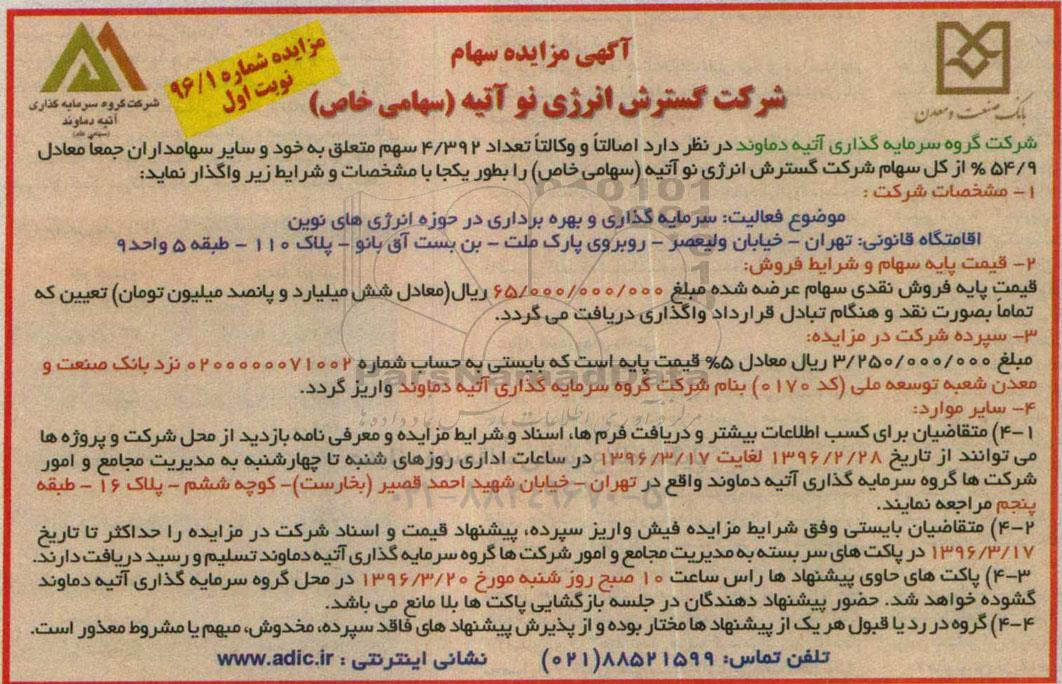 آگهی مزایده سهام
شرکت گسترش انرژی نو آتیه (سهامی خاص)
مزایده شماره ۹۶/۱
نوبت اول
بانک صنعت و معدن
شرکت گروه سرمایه گذاری
آتیه دماوند
(سهامی عام)
شرکت گروه سرمایه گذاری آتیه دماوند در نظر دارد اصالتاً و وکالتاً تعداد ۴/۳۹۲ سهم متعلق به خود و سایر سهامداران جمعاً معادل
۵۴/۹ % از کل سهام شرکت گسترش انرژی نو آتیه (سهامی خاص) را بطور یکجا با مشخصات و شرایط زیر واگذار نماید:
۱- مشخصات شرکت :
موضوع فعالیت: سرمایه گذاری و بهره برداری در حوزه انرژی های نوین
اقامتگاه قانونی: تهران - خیابان ولیعصر - روبروی پارک ملت - بن بست آق بانو - پلاک ۱۱۰ - طبقه ۵ واحد۹
۲- قیمت پایه سهام و شرایط فروش:
قیمت پایه فروش نقدی سهام عرضه شده مبلغ ۶۵/۰۰۰/۰۰۰/۰۰۰ ریال(معادل شش میلیارد و پانصد میلیون تومان) تعیین که
تماماً بصورت نقد و هنگام تبادل قرارداد واگذاری دریافت می گردد.
۳- سپرده شرکت در مزایده:
مبلغ ۳/۲۵۰/۰۰۰/۰۰۰ ریال معادل ۵% قیمت پایه است که بایستی به حساب شماره ۰۲۰۰۰۰۰۰۷۱۰۰۲ نزد بانک صنعت و
معدن شعبه توسعه ملی (کد ۰۱۷۰) بنام شرکت گروه سرمایه گذاری آتیه دماوند واریز گردد.
۴- سایر موارد:
۴-۱) متقاضیان برای کسب اطلاعات بیشتر و دریافت فرم ها، اسناد و شرایط مزایده و معرفی نامه بازدید از محل شرکت و پروژه ها
می توانند از تاریخ ۱۳۹۶/۲/۲۸ لغایت ۱۳۹۶/۳/۱۷ در ساعات اداری روزهای شنبه تا چهارشنبه به مدیریت مجامع و امور
شرکت ها گروه سرمایه گذاری آتیه دماوند واقع در تهران - خیابان شهید احمد قصیر (بخارست)- کوچه ششم - پلاک ۱۶ - طبقه
پنجم مراجعه نمایند.
۴-۲) متقاضیان بایستی وفق شرایط مزایده فیش واریز سپرده، پیشنهاد قیمت و اسناد شرکت در مزایده را حداکثر تا تاریخ
۱۳۹۶/۳/۱۷ در پاکت های سر بسته به مدیریت مجامع و امور شرکت ها گروه سرمایه گذاری آتیه دماوند تسلیم و رسید دریافت دارند.
۴-۳) پاکت های حاوی پیشنهاد ها راس ساعت ۱۰ صبح روز شنبه مورخ ۱۳۹۶/۳/۲۰ در محل گروه سرمایه گذاری آتیه دماوند
گشوده خواهد شد. حضور پیشنهاد دهندگان در جلسه بازگشایی پاکت ها بلا مانع می باشد.
۴-۴) گروه در رد یا قبول هر یک از پیشنهاد ها مختار بوده و از پذیرش پیشنهاد های فاقد سپرده، مخدوش، مبهم یا مشروط معذور است.
تلفن تماس: ۸۸۵۲۱۵۹۹(۰۲۱) نشانی اینترنتی : www.adic.ir